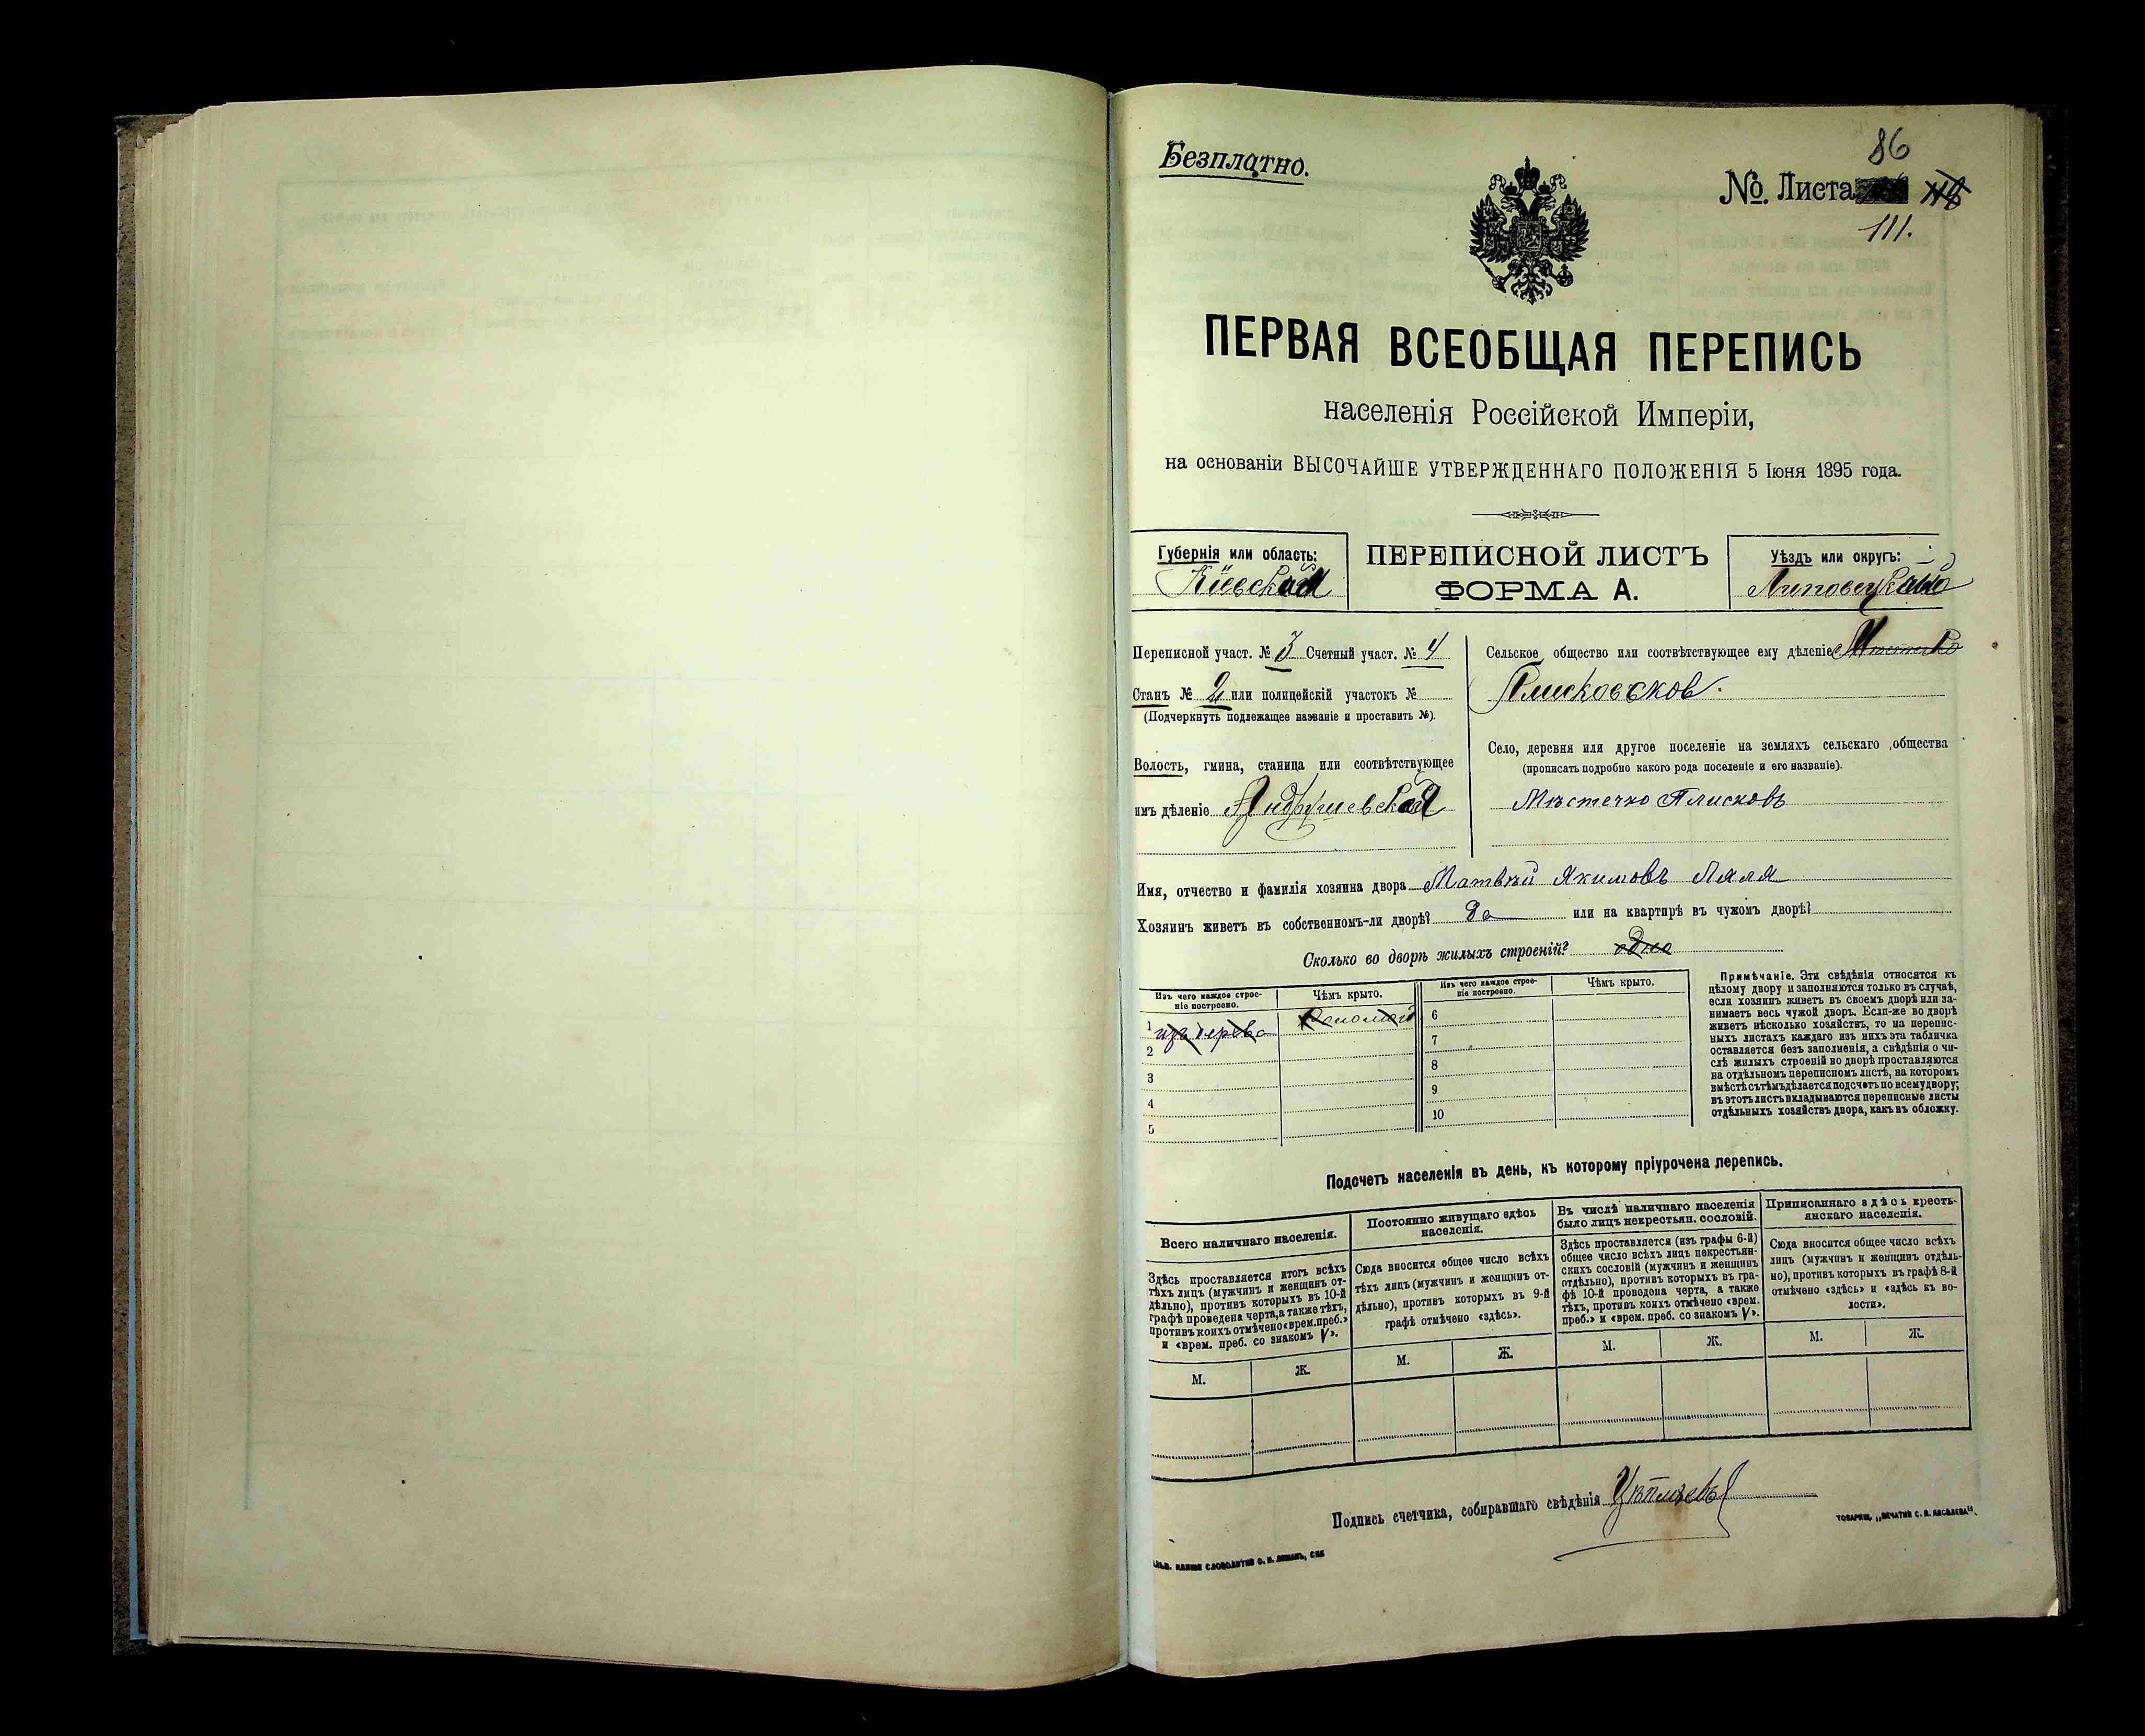 Безплатно.
86
№. Листа
111.
ПЕРВАЯ ВСЕОБЩАЯ ПЕРЕПИСЬ
населенія Россійской Имперіи,
на основаніи ВЫСОЧАЙШЕ УТВЕРЖДЕННАГО ПОЛОЖЕНІЯ 5 Іюня 1895 года.
Губернія или область:
Кіевская
ПЕРЕПИСНОЙ ЛИСТЪ
ФОРМА А.
Уѣздъ или округъ:
Переписной участ. № 3 Счетный участ. № 4
Станъ № 2 или полицейскій участокъ №
(Подчеркнуть подлежащее названіе и проставить №).
Волость, гмина, станица или соотвѣтствующее
имъ дѣленіе Андрушевская
Сельское общество или соотвѣтствующее ему дѣленіе
Плисковсков.
Село, деревня или другое поселеніе на земляхъ сельскаго общества
(прописать подробно какого рода поселеніе и его названіе).
Мѣстечко Плисковъ
Имя, отчество и фамилія хозяина двора Матвѣй Якимовъ Ляля
Хозяинъ живетъ въ собственномъ-ли дворѣ? Да или на квартирѣ въ чужомъ дворѣ?
Сколько во дворѣ жилыхъ строеній? одно
Изъ чего каждое строе-
ніе построено.
Чѣмъ крыто.
1 изъ дерева
Соломой
2
3
4
5
Изъ чего каждое строе-
ніе построено.
Чѣмъ крыто.
6
7
8
9
10
Примѣчаніе. Эти свѣдѣнія относятся къ
цѣлому двору и заполняются только въ случаѣ,
если хозяинъ живетъ въ своемъ дворѣ или за-
нимаетъ весь чужой дворъ. Если-же во дворѣ
живетъ нѣсколько хозяйствъ, то на перепис-
ныхъ листахъ каждаго изъ нихъ эта табличка
оставляется безъ заполненія, а свѣдѣнія о чи-
слѣ жилыхъ строеній во дворѣ проставляются
на отдѣльномъ переписномъ листѣ, на которомъ
вмѣстѣ съ тѣмъ дѣлается подсчетъ по всему двору;
въ этотъ листъ вкладываются переписные листы
отдѣльныхъ хозяйствъ двора, какъ въ обложку.
Подсчетъ населенія въ день, къ которому пріурочена перепись.
Всего наличнаго населенія.
Здѣсь проставляется итогъ всѣхъ
тѣхъ лицъ (мужчинъ и женщинъ от-
дѣльно), противъ которыхъ въ 10-й
графѣ проведена черта, а также тѣхъ,
противъ коихъ отмѣчено «врем. преб.»
и «врем. преб. со знакомъ V».
М. Ж.
Постоянно живущаго здѣсь
населенія.
Сюда вносится общее число всѣхъ
тѣхъ лицъ (мужчинъ и женщинъ от-
дѣльно), противъ которыхъ въ 9-й
графѣ отмѣчено «здѣсь».
М. Ж.
Въ числѣ наличнаго населенія
было лицъ некрестьян. сословій.
Здѣсь проставляется (изъ графы 6-й)
общее число всѣхъ лицъ некрестьян-
скихъ сословій (мужчинъ и женщинъ
отдѣльно), противъ которыхъ въ гра-
фѣ 10-й проведена черта, а также
тѣхъ, противъ коихъ отмѣчено «врем.
преб.» и «врем. преб. со знакомъ V».
М. Ж.
Приписаннаго здѣсь кресть-
янскаго населенія.
Сюда вносится общее число всѣхъ
лицъ (мужчинъ и женщинъ отдѣль-
но), противъ которыхъ въ графѣ 8-й
отмѣчено «здѣсь» и «здѣсь къ во-
лости».
М. Ж.
Подпись счетчика, собиравшаго свѣдѣнія